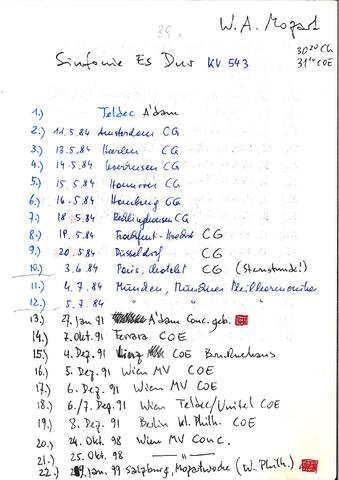 39.
W. A. Mozart
Sinfonie Es Dur KV 543
30²⁰ CG
COE
1.) Teldec A'dam
2.) 11.5.84 Amsterdam CG
3.) 13.5.84 Haarlem CG
4.) 14.5.84 Leverkusen CG
5.) 15.5.84 Hannover CG
6.) 16.5.84 Hamburg CG
7.) 18.5.84 Recklinghausen CG
8.) 19.5.84 Frankfurt-Hoechst CG
9.) 20.5.84 Düsseldorf CG
10.) 3.6.84 Paris, Chatelet CG (Sternstunde!)
11.) 4.7.84 München, Münchner Philharmoniker
12.) 5.7.84 " " "
13.) 27. Jan 91 A'dam Conc. geb.
14.) 7. Okt. 91 Ferrara COE
15.) 4. Dez. 91 COE Brucknerhaus
16.) 5. Dez. 91 Wien MV COE
17.) 6. Dez. 91 Wien MV COE
18.) 6./7. Dez. 91 Wien Teldec/Unitel COE
19.) 8. Dez. 91 Berlin kl. Philh. COE
20.) 24. Okt. 98 Wien MV Conc.
21.) 25. Okt. 98 — " —
22.) Jan. 99 Salzburg, Mozartwoche (W. Philh.)